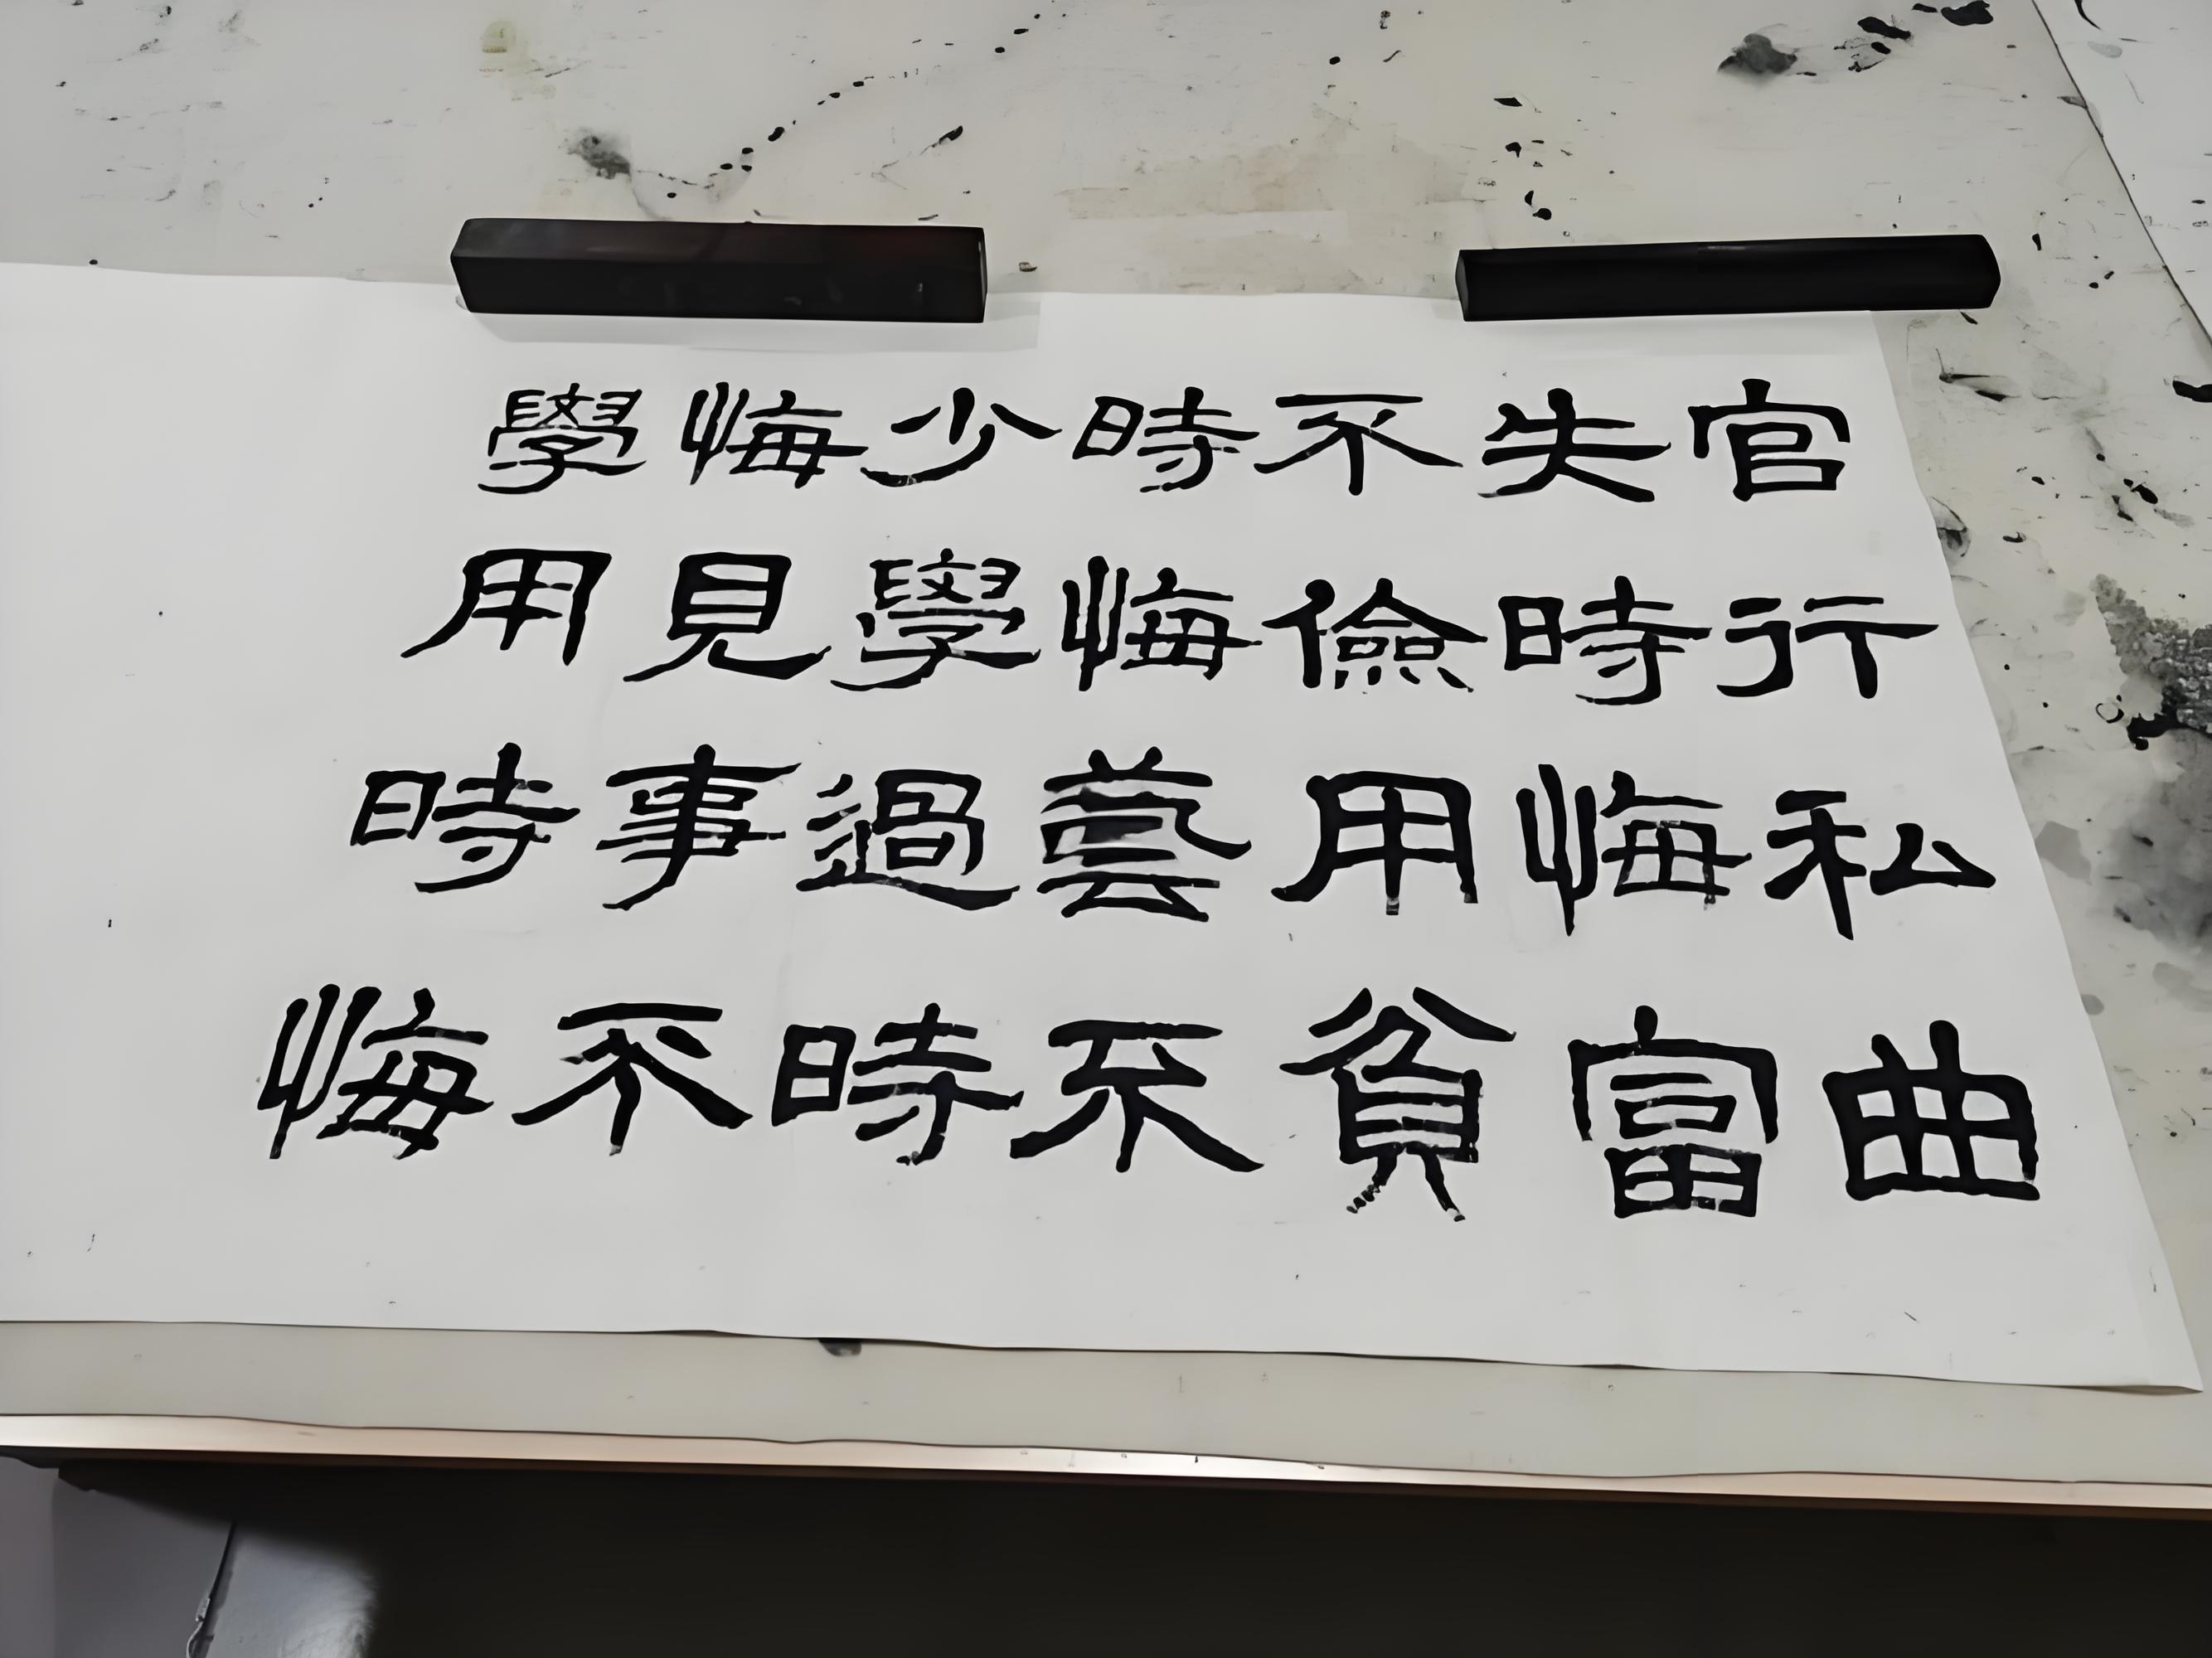 官行私曲
失時悔富
不儉用貧
時悔藝不
少學過時
悔見事不
學用時悔